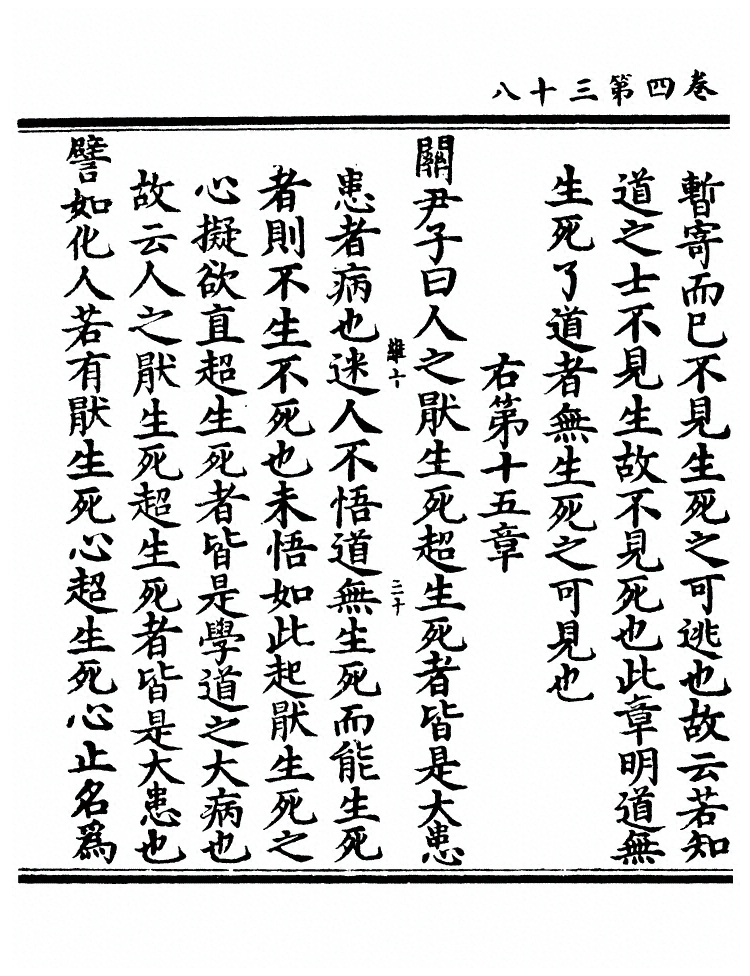 卷四第三十八
暫寄而已不見生死之可逃也故云若知
道之士不見生故不見死也此章明道無
生死了道者無生死之可見也
右第十五章
關尹子曰人之厭生死超生死者皆是大患
維十
二十
患者病也迷人不悟道無生死而能生死
者則不生不死也未悟如此起厭生死之
心擬欲直超生死者皆是學道之大病也
故云人之厭生死超生死者皆是大患也
譬如化人若有厭生死心超生死心止名為